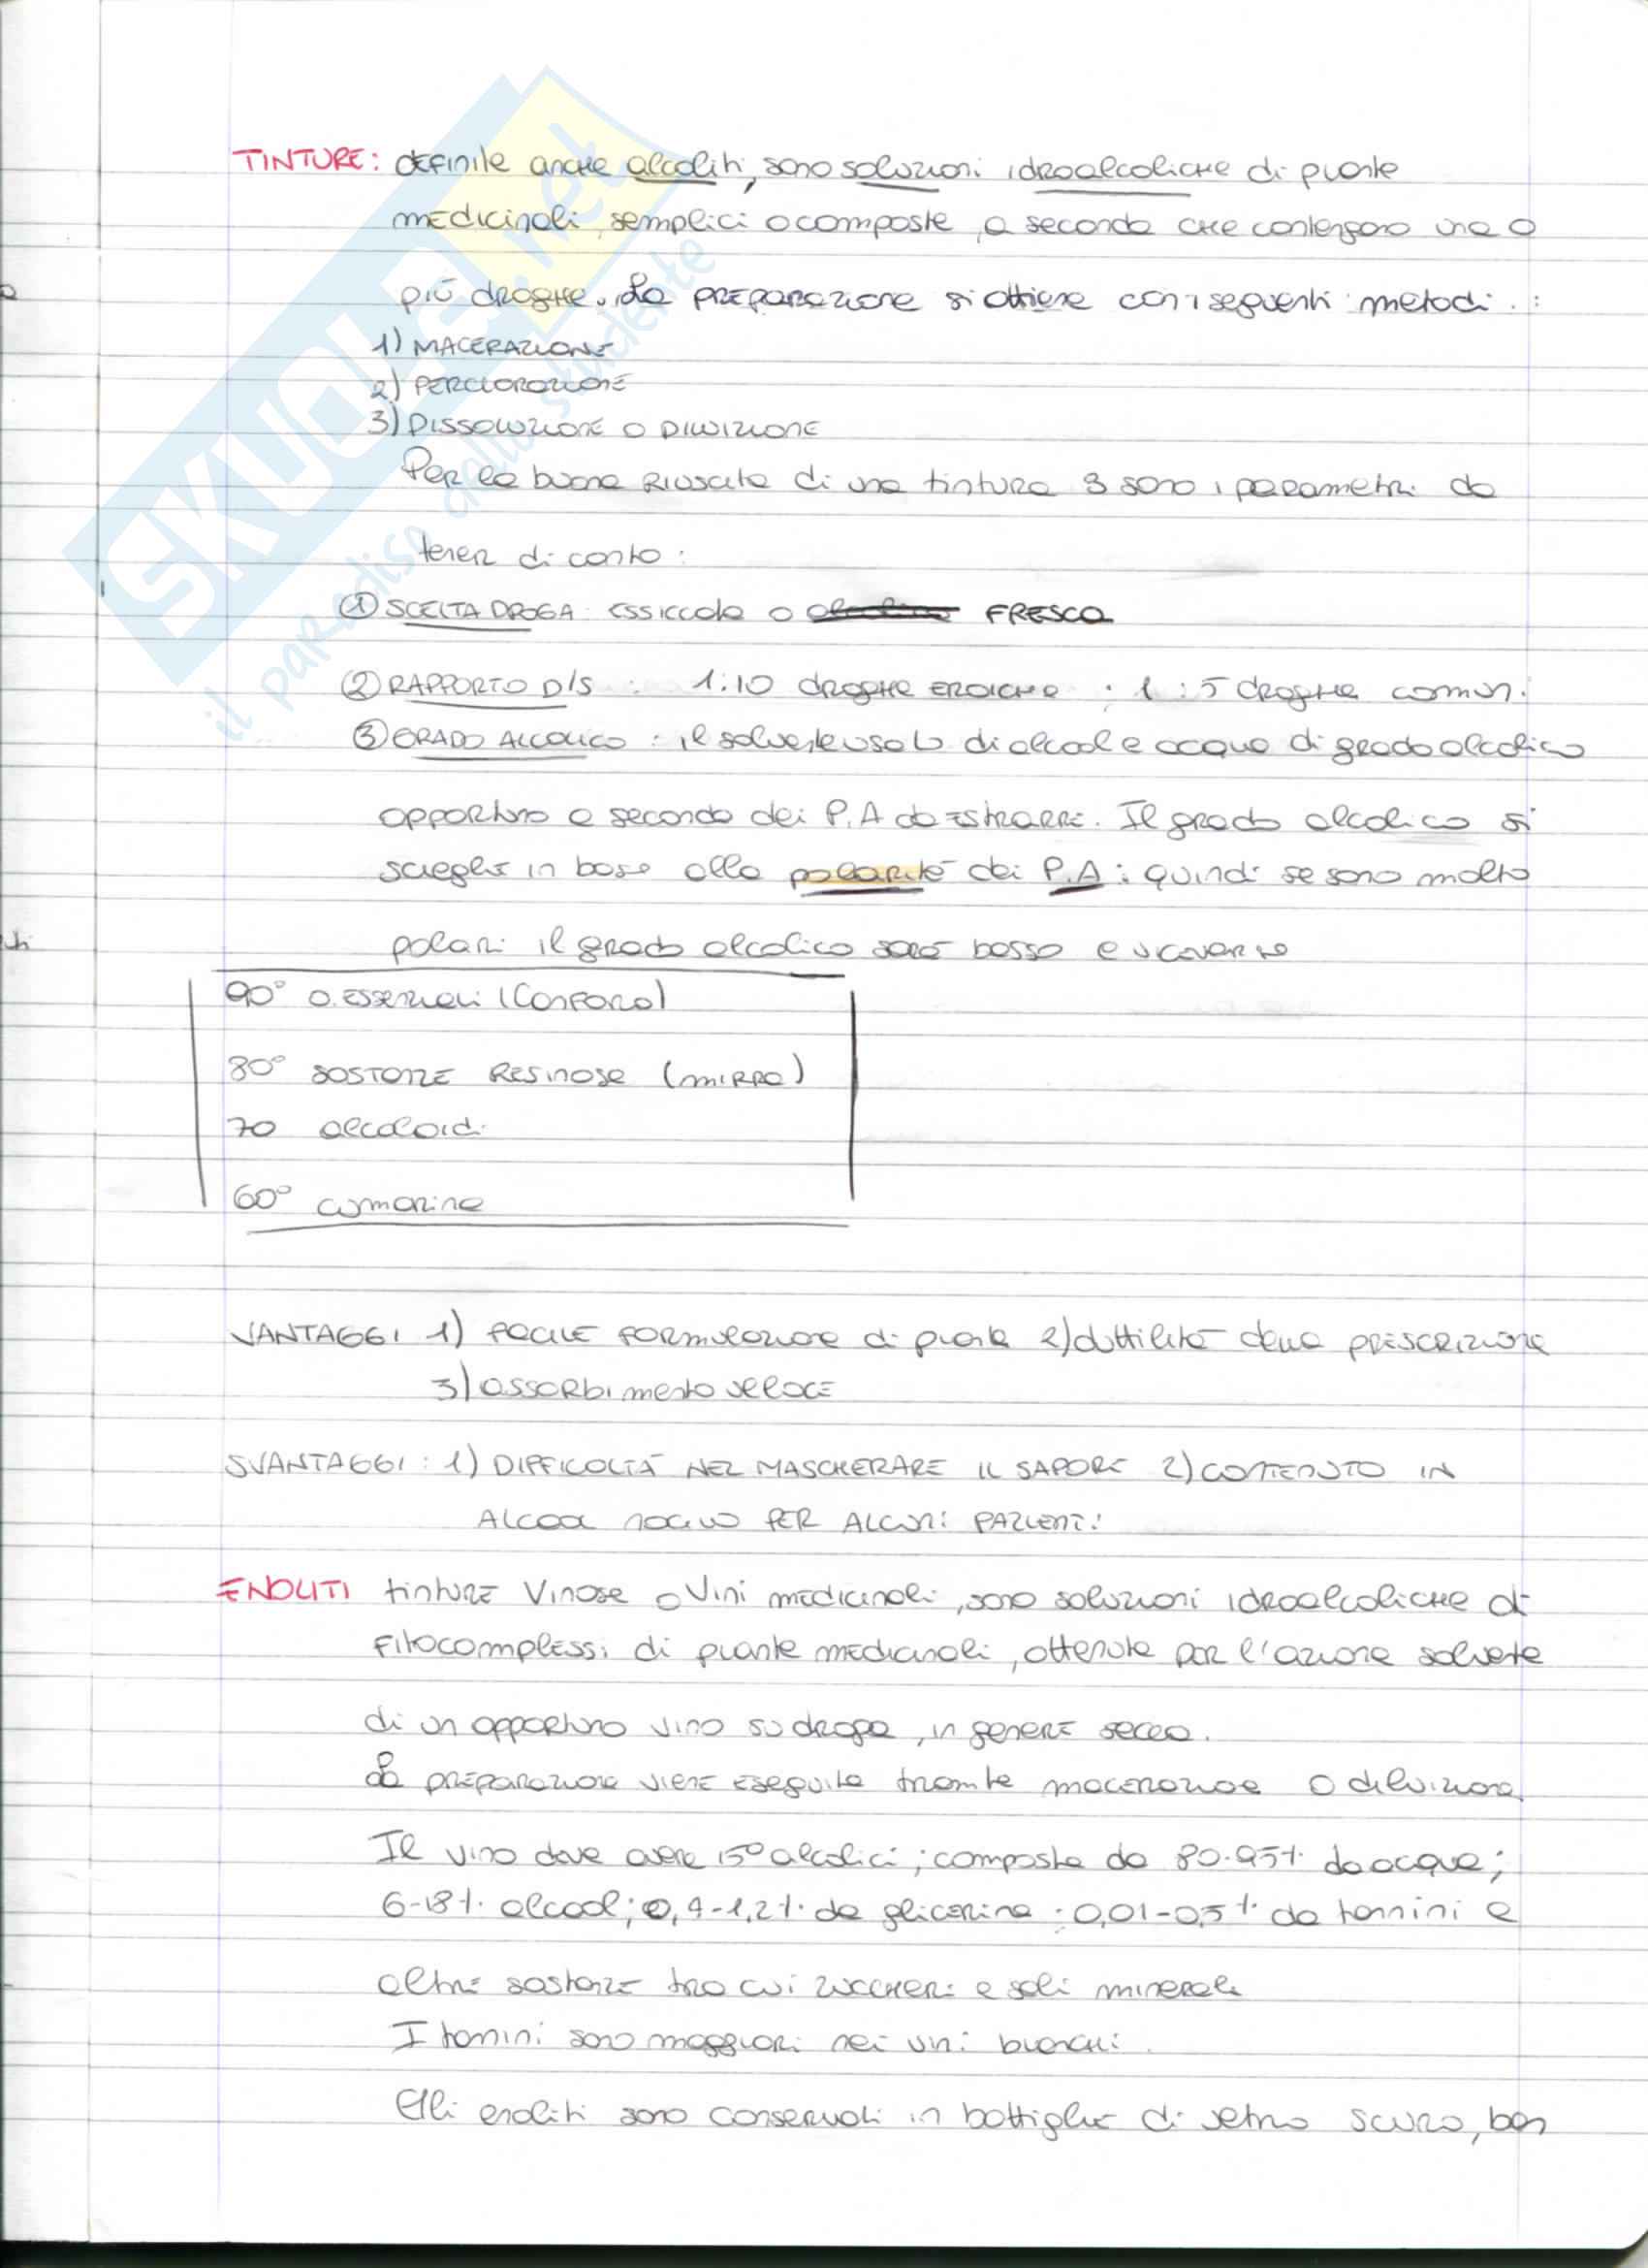 SKUOLA.net
il paradiso dello studente
TINTURE: definite anche alcoliti, sono soluzioni idroalcoliche di piante
medicinali semplici o composte, a seconda che contengano una o
più droghe. La preparazione si ottiene con i seguenti metodi :
1) MACERAZIONE
2) PERCLORAZIONE
3) DISSOLUZIONE O DILUIZIONE
Per la buona riuscita di una tintura 3 sono i parametri da
tener di conto :
① SCELTA DROGA : essiccata o FRESCA
② RAPPORTO D/S : 1:10 droghe eroiche ; 1:5 droghe comuni
③ GRADO ALCOLICO : il solvente usato di alcool e acqua di grado alcolico
opportuno a seconda dei P.A da estrarre. Il grado alcolico si
sceglie in base alla polarità dei P.A : quindi se sono molto
polari il grado alcolico sarà basso e viceversa
90° o. essenziali (canfora)
80° sostanze resinose (mirra)
70 alcaloidi
60° cumarine
VANTAGGI 1) facile formulazione di piante 2) duttilità della prescrizione
3) assorbimento veloce
SVANTAGGI : 1) DIFFICOLTÀ NEL MASCHERARE IL SAPORE 2) CONTENUTO IN
ALCOOL nocivo PER ALCUNI PAZIENTI
ENOLITI tinture vinose o vini medicinali, sono soluzioni idroalcoliche di
fitocomplessi di piante medicinali, ottenute per l'azione solvente
di un opportuno vino su droga, in genere secca.
La preparazione viene eseguita tramite macerazione o diluizione.
Il vino deve avere 15° alcolici ; composta da 80-95% da acqua ;
6-18% alcool ; 0,4-1,2% da glicerina ; 0,01-0,5% da tannini e
altre sostanze tra cui zuccheri e sali minerali
I tannini sono maggiori nei vini bianchi.
Gli enoliti sono conservati in bottiglie di vetro scuro, ben